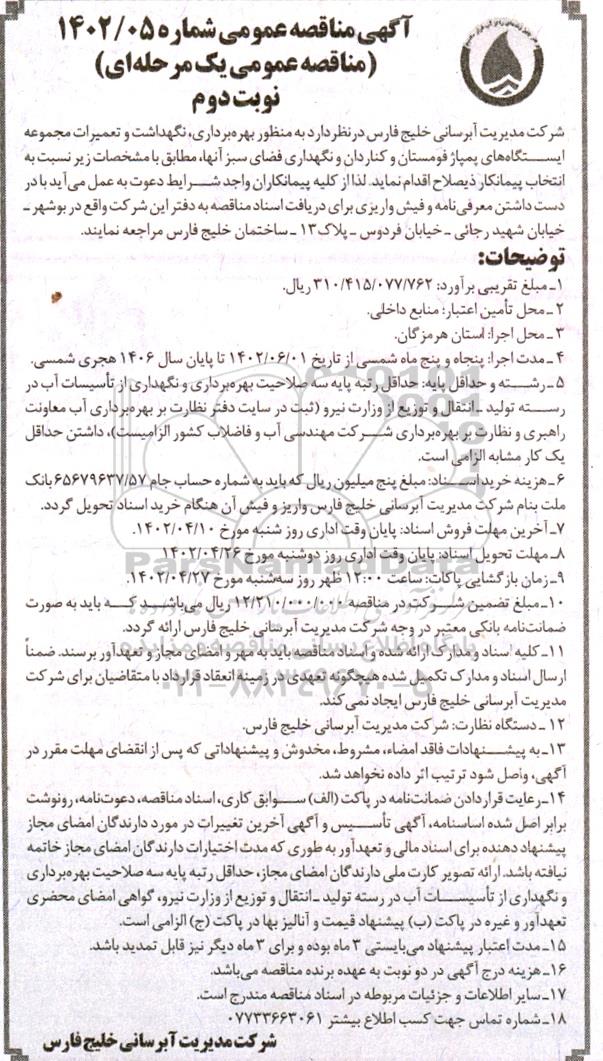 آگهی مناقصه عمومی شماره ۱۴۰۲/۰۵
(مناقصه عمومی یک مرحله‌ای)
نوبت دوم
شرکت مدیریت آبرسانی خلیج فارس در نظر دارد به منظور بهره‌برداری، نگهداشت و تعمیرات مجموعه
ایستگاه‌های پمپاژ فومستان و کناردان و نگهداری فضای سبز آنها، مطابق با مشخصات زیر نسبت به
انتخاب پیمانکار ذیصلاح اقدام نماید. لذا از کلیه پیمانکاران واجد شرایط دعوت به عمل می‌آید با در
دست داشتن معرفی‌نامه و فیش واریزی برای دریافت اسناد مناقصه به دفتر این شرکت واقع در بوشهر ـ
خیابان شهید رجائی ـ خیابان فردوس ـ پلاک ۱۳ ـ ساختمان خلیج فارس مراجعه نمایند.
توضیحات:
۱ـ مبلغ تقریبی برآورد: ۳۱۰/۴۱۵/۰۷۷/۷۶۲ ریال.
۲ـ محل تأمین اعتبار: منابع داخلی.
۳ـ محل اجرا: استان هرمزگان.
۴ـ مدت اجرا: پنجاه و پنج ماه شمسی از تاریخ ۱۴۰۲/۰۶/۰۱ تا پایان سال ۱۴۰۶ هجری شمسی.
۵ـ رشته و حداقل پایه: حداقل رتبه پایه سه صلاحیت بهره‌برداری و نگهداری از تأسیسات آب در
رسته تولید ـ انتقال و توزیع از وزارت نیرو (ثبت در سایت دفتر نظارت بر بهره‌برداری آب معاونت
راهبری و نظارت بر بهره‌برداری شرکت مهندسی آب و فاضلاب کشور الزامیست)، داشتن حداقل
یک کار مشابه الزامی است.
۶ـ هزینه خرید اسناد: مبلغ پنج میلیون ریال که باید به شماره حساب جام ۶۵۶۷۹۶۳۷/۵۷ بانک
ملت بنام شرکت مدیریت آبرسانی خلیج فارس واریز و فیش آن هنگام خرید اسناد تحویل گردد.
۷ـ آخرین مهلت فروش اسناد: پایان وقت اداری روز شنبه مورخ ۱۴۰۲/۰۴/۱۰.
۸ـ مهلت تحویل اسناد: پایان وقت اداری روز دوشنبه مورخ ۱۴۰۲/۰۴/۲۶
۹ـ زمان بازگشایی پاکات: ساعت ۱۲:۰۰ ظهر روز سه‌شنبه مورخ ۱۴۰۲/۰۴/۲۷.
۱۰ـ مبلغ تضمین شرکت در مناقصه ۱۲/۲۱۰/۰۰۰/۰۰۰ ریال می‌باشد که باید به صورت
ضمانت‌نامه بانکی معتبر در وجه شرکت مدیریت آبرسانی خلیج فارس ارائه گردد.
۱۱ـ کلیه اسناد و مدارک ارائه شده و اسناد مناقصه باید به مهر و امضای مجاز و تعهدآور برسند. ضمناً
ارسال اسناد و مدارک تکمیل شده هیچگونه تعهدی در زمینه انعقاد قرارداد با متقاضیان برای شرکت
مدیریت آبرسانی خلیج فارس ایجاد نمی‌کند.
۱۲ ـ دستگاه نظارت: شرکت مدیریت آبرسانی خلیج فارس.
۱۳ـ به پیشنهادات فاقد امضاء، مشروط، مخدوش و پیشنهاداتی که پس از انقضای مهلت مقرر در
آگهی، واصل شود ترتیب اثر داده نخواهد شد.
۱۴ـ رعایت قرار دادن ضمانت‌نامه در پاکت (الف) سوابق کاری، اسناد مناقصه، دعوت‌نامه، رونوشت
برابر اصل شده اساسنامه، آگهی تأسیس و آگهی آخرین تغییرات در مورد دارندگان امضای مجاز
پیشنهاد دهنده برای اسناد مالی و تعهدآور به طوری که مدت اختیارات دارندگان امضای مجاز خاتمه
نیافته باشد. ارائه تصویر کارت ملی دارندگان امضای مجاز، حداقل رتبه پایه سه صلاحیت بهره‌برداری
و نگهداری از تأسیسات آب در رسته تولید ـ انتقال و توزیع از وزارت نیرو، گواهی امضای محضری
تعهدآور و غیره در پاکت (ب) پیشنهاد قیمت و آنالیز بها در پاکت (ج) الزامی است.
۱۵ـ مدت اعتبار پیشنهاد می‌بایستی ۳ ماه بوده و برای ۳ ماه دیگر نیز قابل تمدید باشد.
۱۶ـ هزینه درج آگهی در دو نوبت به عهده برنده مناقصه می‌باشد.
۱۷ـ سایر اطلاعات و جزئیات مربوطه در اسناد مناقصه مندرج است.
۱۸ـ شماره تماس جهت کسب اطلاع بیشتر ۰۷۷۳۳۶۶۳۰۶۱
شرکت مدیریت آبرسانی خلیج فارس
ParsNamadData
پایگاه اطلاع رسانی مناقصه و مزایده
۰۲۱-۸۸۳۴۹۶۷۰-۵